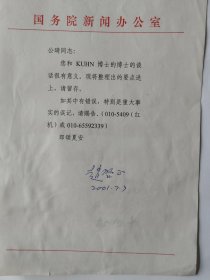 国务院新闻办公室
公琦同志：
您和 KUHN 博士的博士的谈
话很有意义。现将整理出的要点送
上，请留存。
如其中有错误，特别是重大事
实的误记，请赐告。（010-5409（红
机）或 010-65592339）
即颂夏安
赵启正
2001.7.3